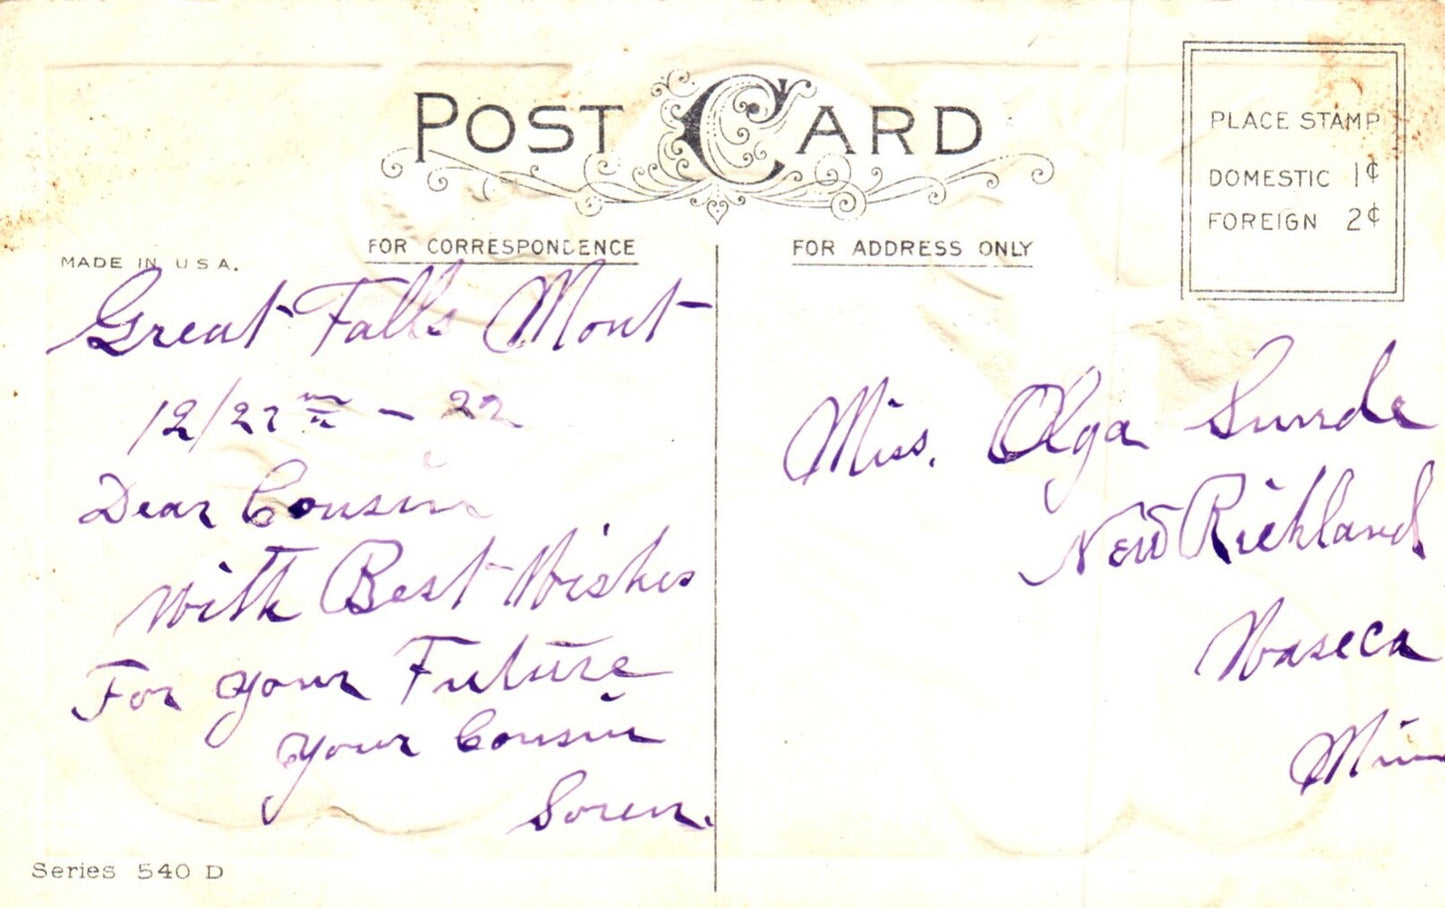 POST CARD
PLACE STAMP
DOMESTIC 1¢
FOREIGN 2¢
MADE IN U S A.
FOR CORRESPONDENCE
FOR ADDRESS ONLY
Great Falls Mont
12/27 - 22
Dear Cousin
With Best Wishes
For your Future
your Cousin
Soren.
Miss. Olga Sunde
New Richland
Waseca
Minn
Series 540 D